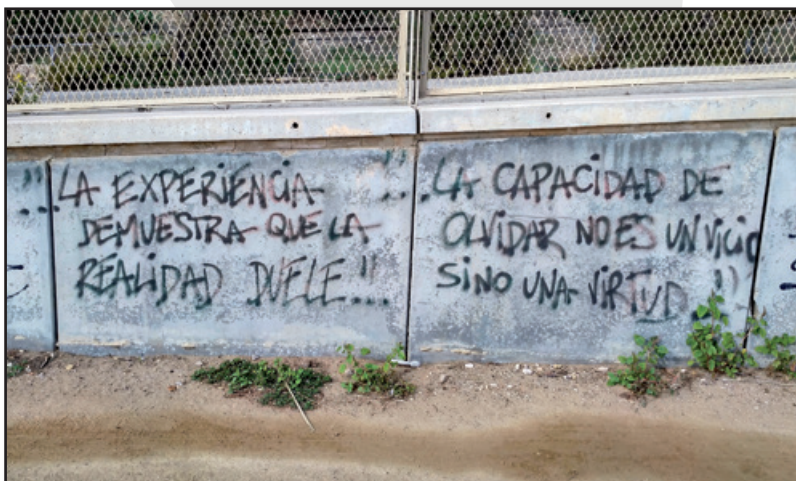 "...LA EXPERIENCIA
DEMUESTRA QUE LA
REALIDAD DUELE"...
"...LA CAPACIDAD DE
OLVIDAR NO ES UN VICIO
SINO UNA VIRTUD..."